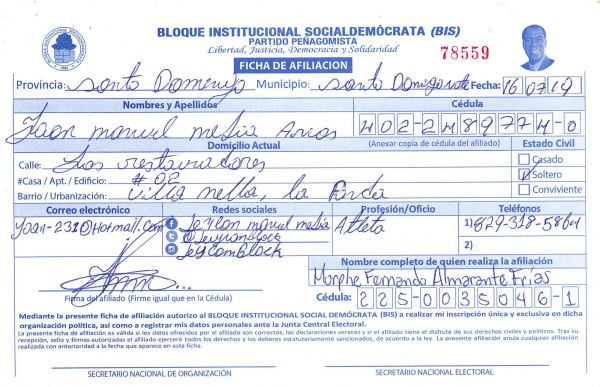 BLOQUE INSTITUCIONAL SOCIALDEMÓCRATA (BIS)
PARTIDO PEÑAGOMISTA
Libertad, Justicia, Democracia y Solidaridad
78559
FICHA DE AFILIACION
Provincia: Santo Domingo Municipio: Santo Domingo Fecha: 16/07/19
Nombres y Apellidos Cédula
Joan manuel mesia Arias 402-2489774-0
Domicilio Actual (Anexar copia de cédula del afiliado) Estado Civil
Calle: Los restauradores Casado
#Casa / Apt. / Edificio: # 02 Soltero
Barrio / Urbanización: Villa mella, la Conviviente
Correo electrónico Redes sociales Profesión/Oficio Teléfonos
Joan-2310Hotmail.com Jeycon manuel mesia Atleta 1)829-318-5864
@JeyconBlock 2)
JeyconBlock
Nombre completo de quien realiza la afiliación
Morphe Fernando Almarante Frias
Firma del afiliado (Firme igual que en la Cédula) Cédula: 225-0035046-1
Mediante la presente ficha de afiliación autorizo al BLOQUE INSTITUCIONAL SOCIAL DEMÓCRATA (BIS) a realizar mi inscripción única y exclusiva en dicha
organización política, así como a registrar mis datos personales ante la Junta Central Electoral.
La presente ficha de afiliación es válida si los datos ofrecidos por el afiliado son correctos, las declaraciones veraces y si el afiliado tiene el disfrute de sus derechos civiles y políticos. Tras su
recepción, sello y firmas autorizadas el afiliado ejercerá todos los derechos y los deberes estatutariamente sancionados, de acuerdo a la ley. La presente afiliación anula cualquier afiliación
realizada con anterioridad a la fecha que aparece en esta ficha.
SECRETARIO NACIONAL DE ORGANIZACIÓN SECRETARIO NACIONAL ELECTORAL